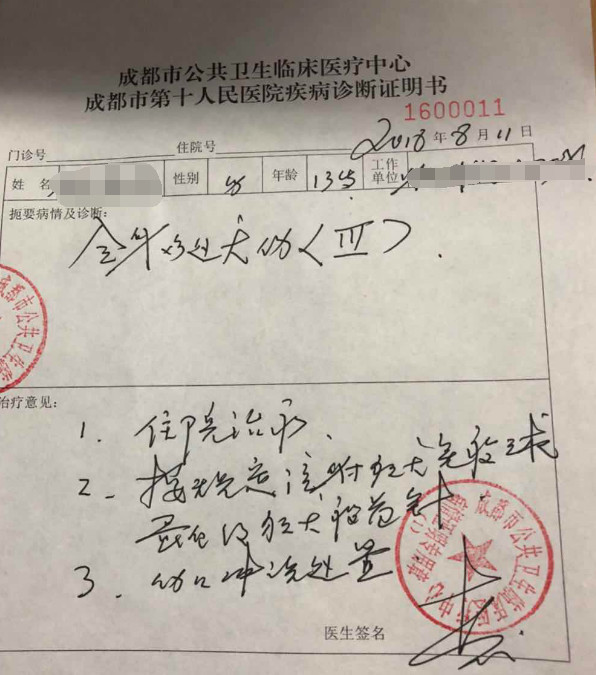 成都市公共卫生临床医疗中心
成都市第十人民医院疾病诊断证明书
1600011
门诊号 住院号 2018年8月11日
姓名 性别 女 年龄 13岁 工作单位
扼要病情及诊断:
全身多处犬伤〈III〉.
治疗意见:
1. 住院治疗.
2. 按规定注射狂犬免疫球
蛋白及狂犬疫苗针
3. 伤口冲洗处置
医生签名
成都市公共卫生
成都市公共卫生临床医疗中心